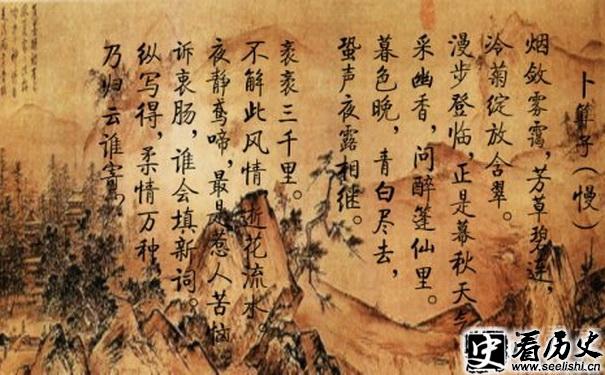 卜算子(慢)
烟敛雾霭,芳草碧连,
冷菊绽放含翠。
漫步登临,正是暮秋天气
采幽香,问醉蓬仙里。
暮色晚,青白尽去,
蛩声夜露相继。
衮衮三千里。
不解此风情,逝花流水。
夜静鸾啼,最是惹人苦恼
诉衷肠,谁会填新词。
纵写得,柔情万种,
乃归云谁寄?
史 看历史
www.seelishi.cn